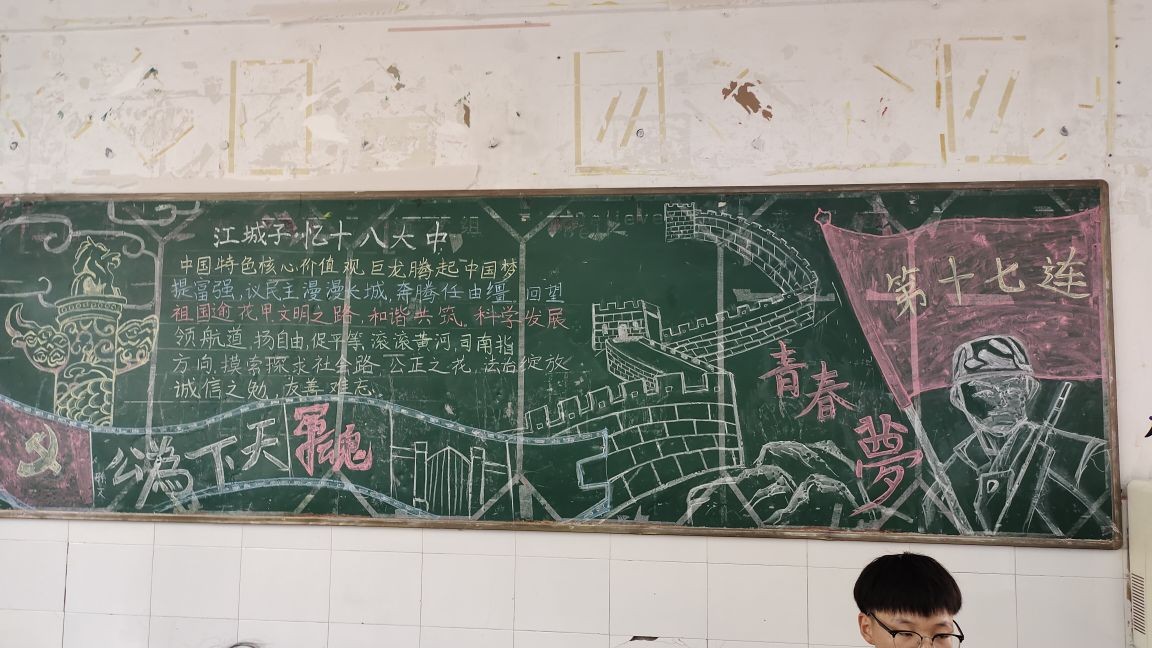 江城子·忆十八大中
中国特色核心价值观,巨龙腾起中国梦
提富强,议民主漫漫长城,奔腾任由缰,回望
祖国逾花甲文明之路,和谐共筑,科学发展
领航道,扬自由,促平等,滚滚黄河,司南指
方向,摸索探求社会路,公正之花,法治绽放
诚信之勉,友善难忘。
公為下天
軍魂
青春
夢
第十七连